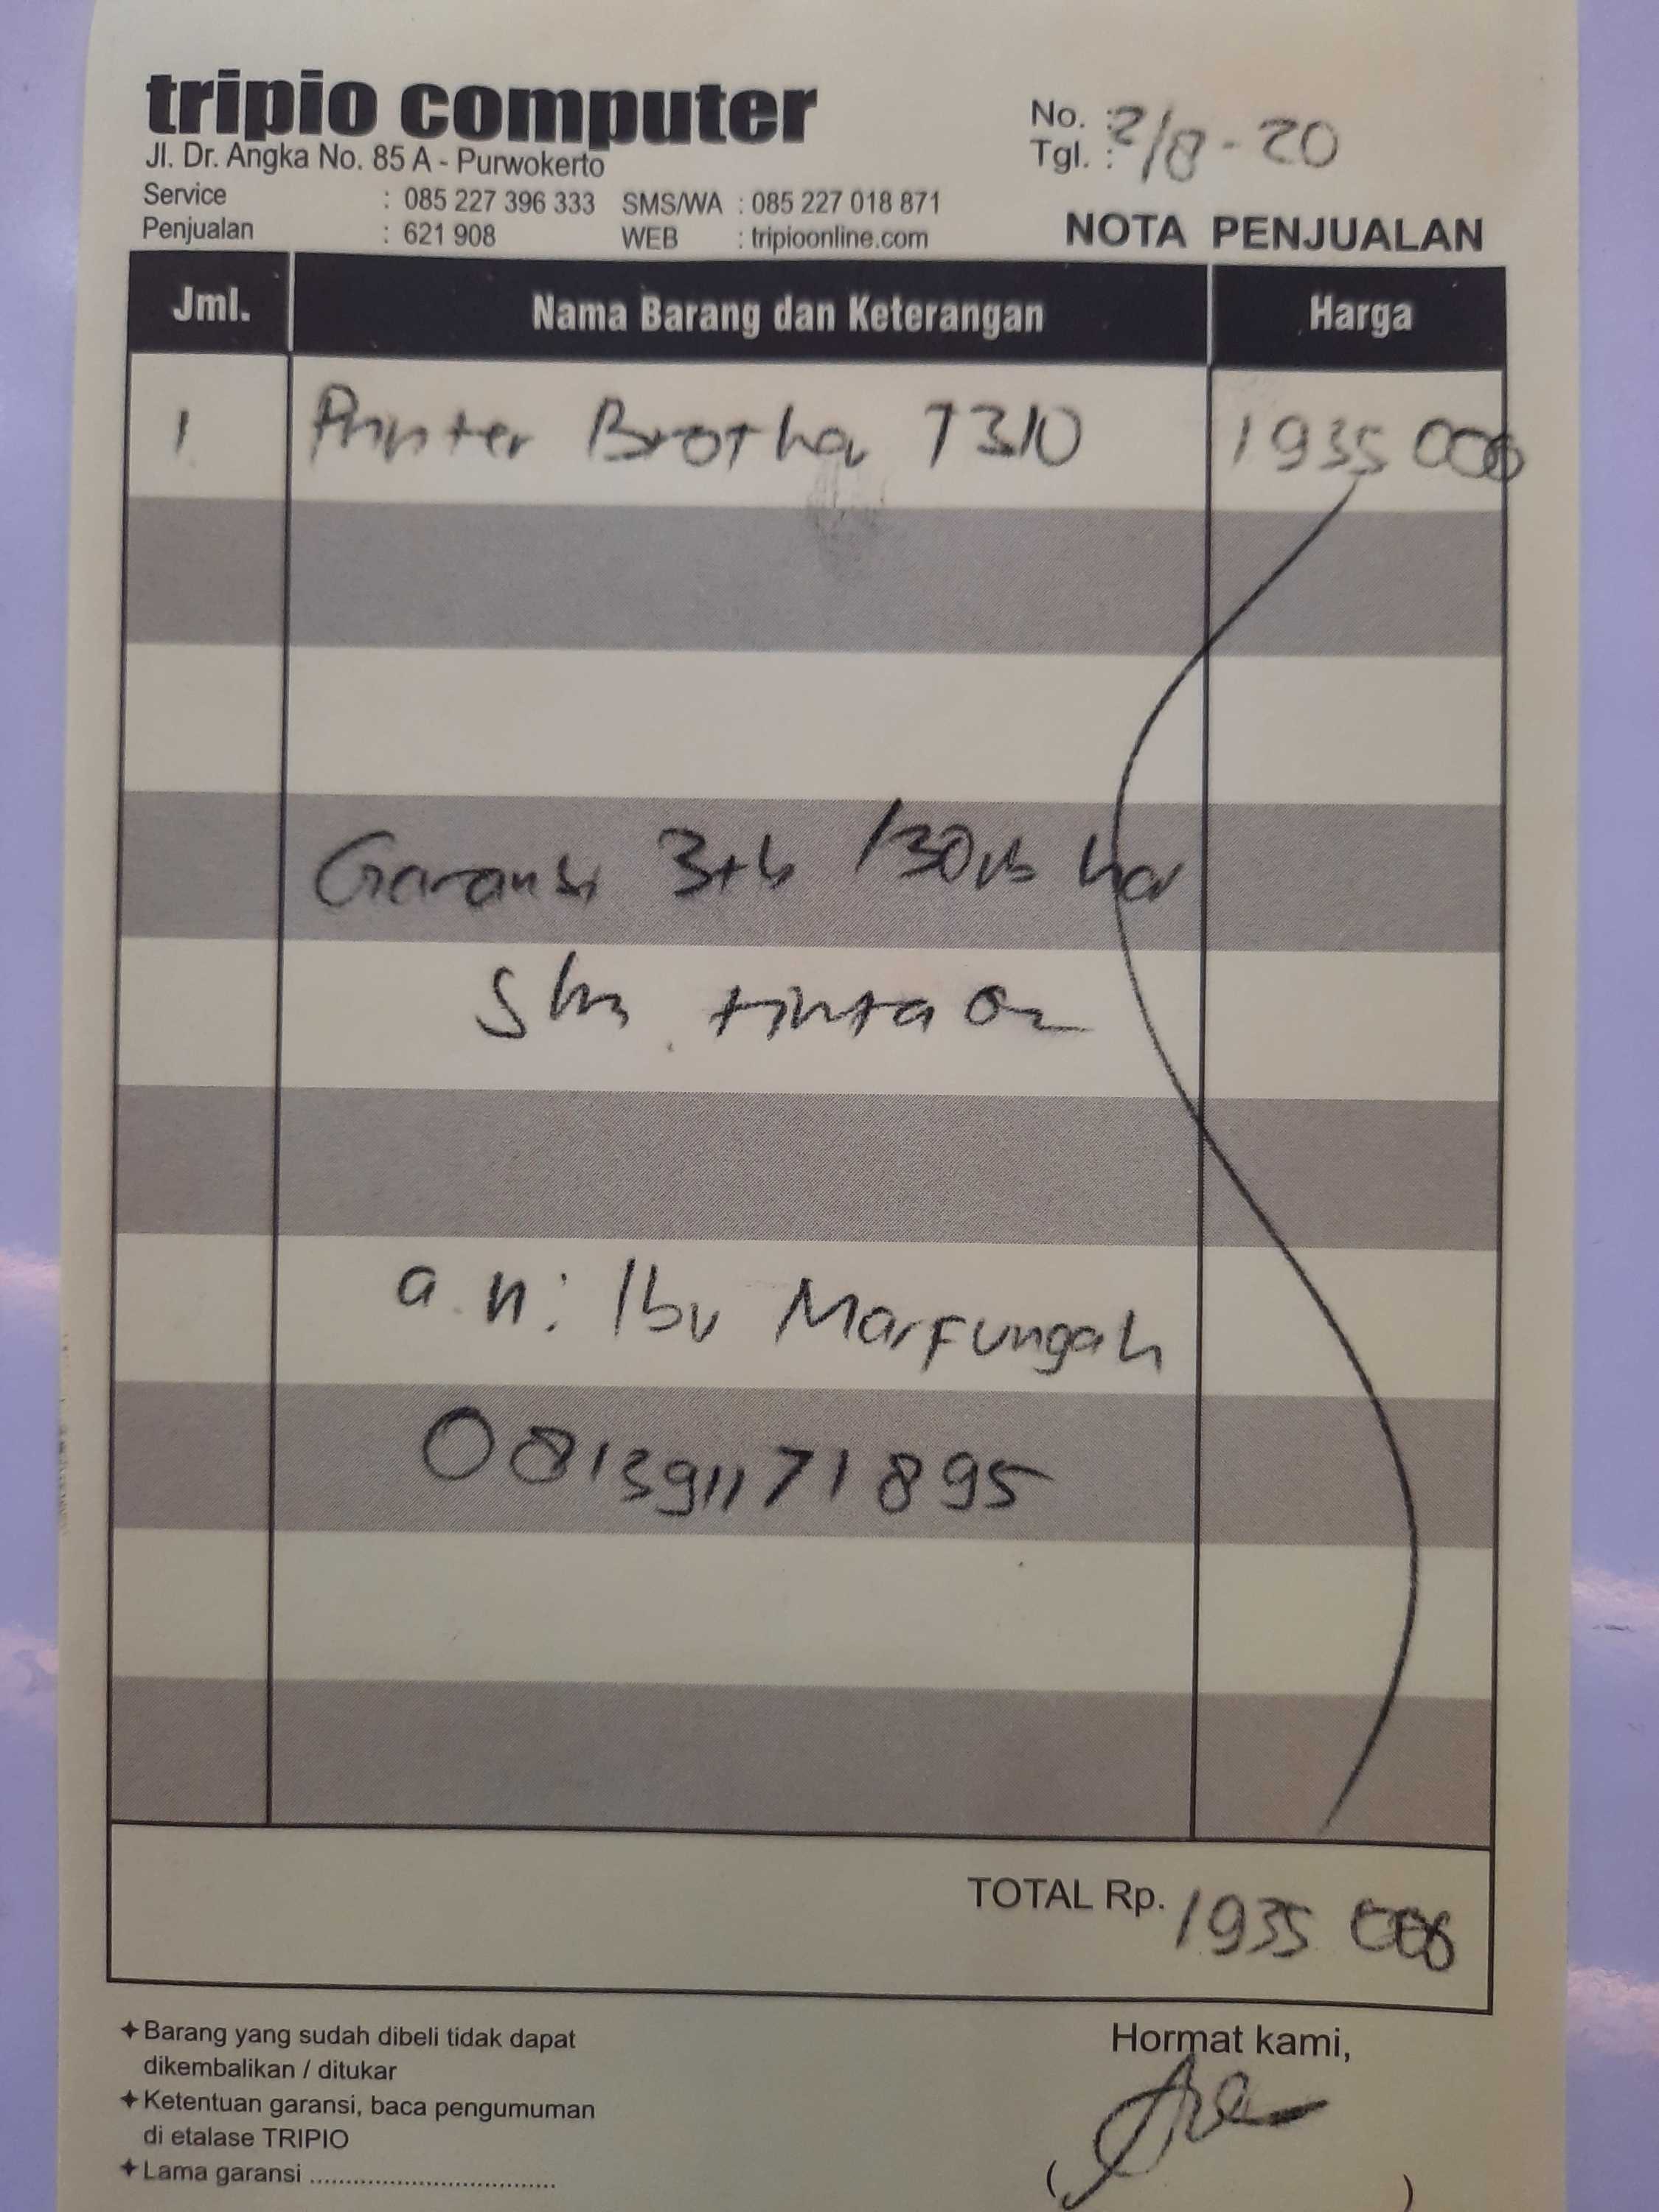 tripio computer
Jl. Dr. Angka No. 85 A - Purwokerto
No. :
Tgl. : 2/8-20
Service : 085 227 396 333 SMS/WA : 085 227 018 871
Penjualan : 621 908 WEB : tripioonline.com
NOTA PENJUALAN
Jml. Nama Barang dan Keterangan Harga
1 Printer Brother T310 1935 000
Garansi 3th /30rb
tinta
a.n: Ibu Marfungah
081391171895
TOTAL Rp. 1935 000
✦ Barang yang sudah dibeli tidak dapat
dikembalikan / ditukar
✦ Ketentuan garansi, baca pengumuman
di etalase TRIPIO
✦ Lama garansi ....................................
Hormat kami,
( )